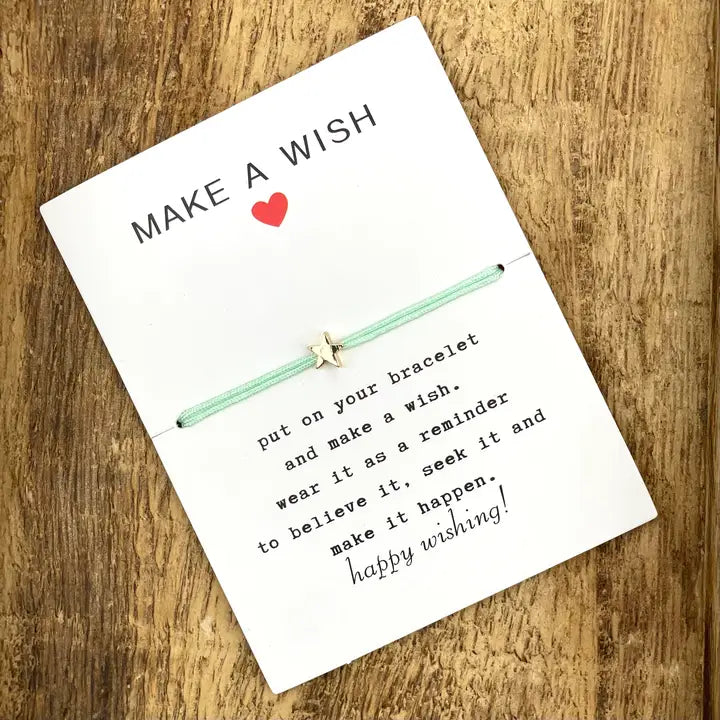 MAKE A WISH
put on your bracelet
and make a wish.
wear it as a reminder
to believe it, seek it and
make it happen.
happy wishing!